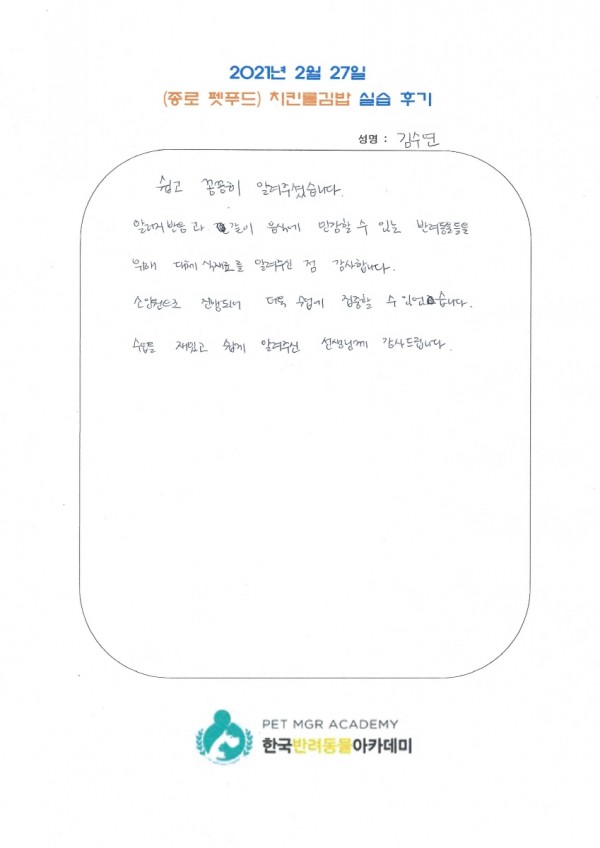 2021년 2월 27일
(종로 펫푸드) 치킨롤김밥 실습 후기
성명 : 김수연
쉽고 꼼꼼히 알려주셨습니다.
알러지 반응과 같이 음식에 민감할 수 있는 반려동물들을
위해 대체 식재료를 알려주신 점 감사합니다.
소인원으로 진행되어 더욱 수업에 집중할 수 있었습니다.
수업을 재밌고 쉽게 알려주신 선생님께 감사드립니다.
PET MGR ACADEMY
한국반려동물아카데미